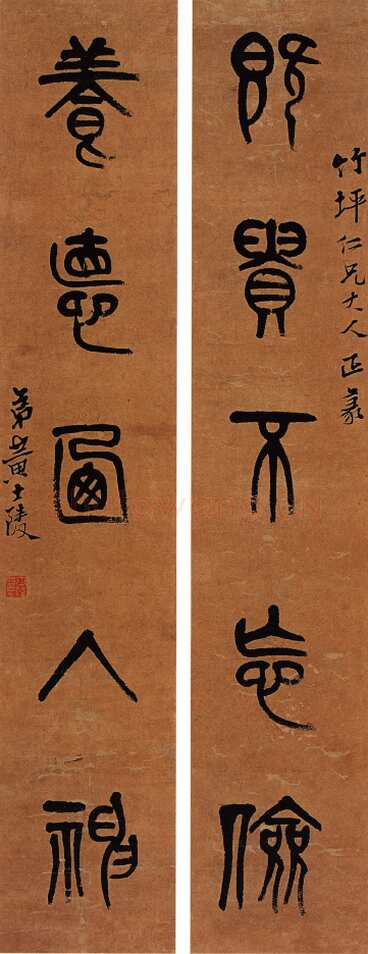 竹坪仁兄大人正篆
既貴不忘儉
養悳入神
弟黃士陵